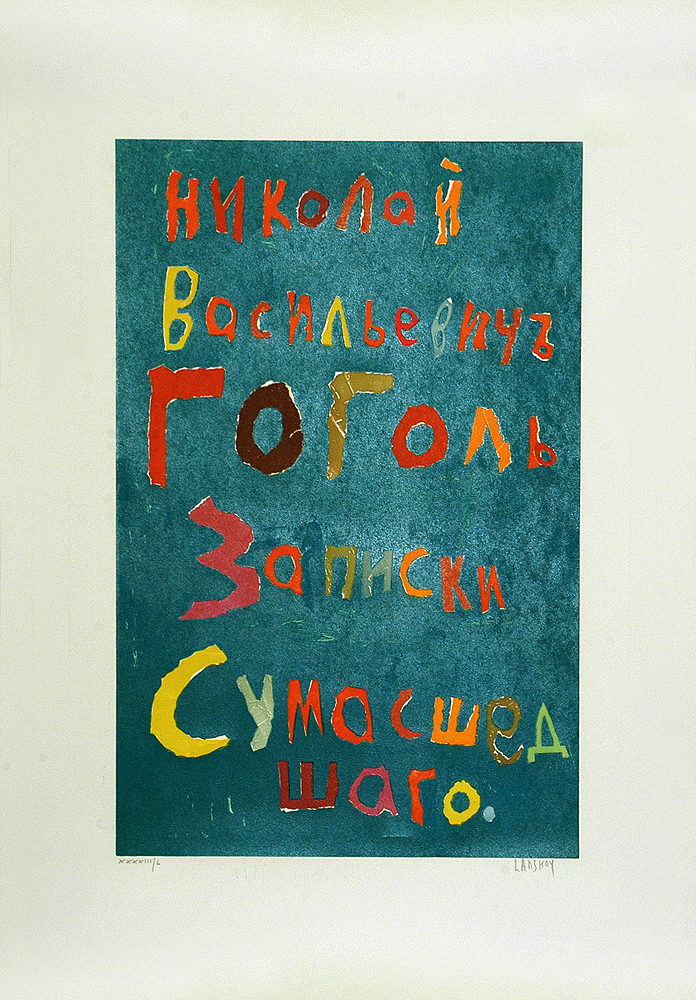 Николай
Васильевичъ
Гоголь
Записки
Сумасшед
шаго.
XXXXIII/L
LANSKOY